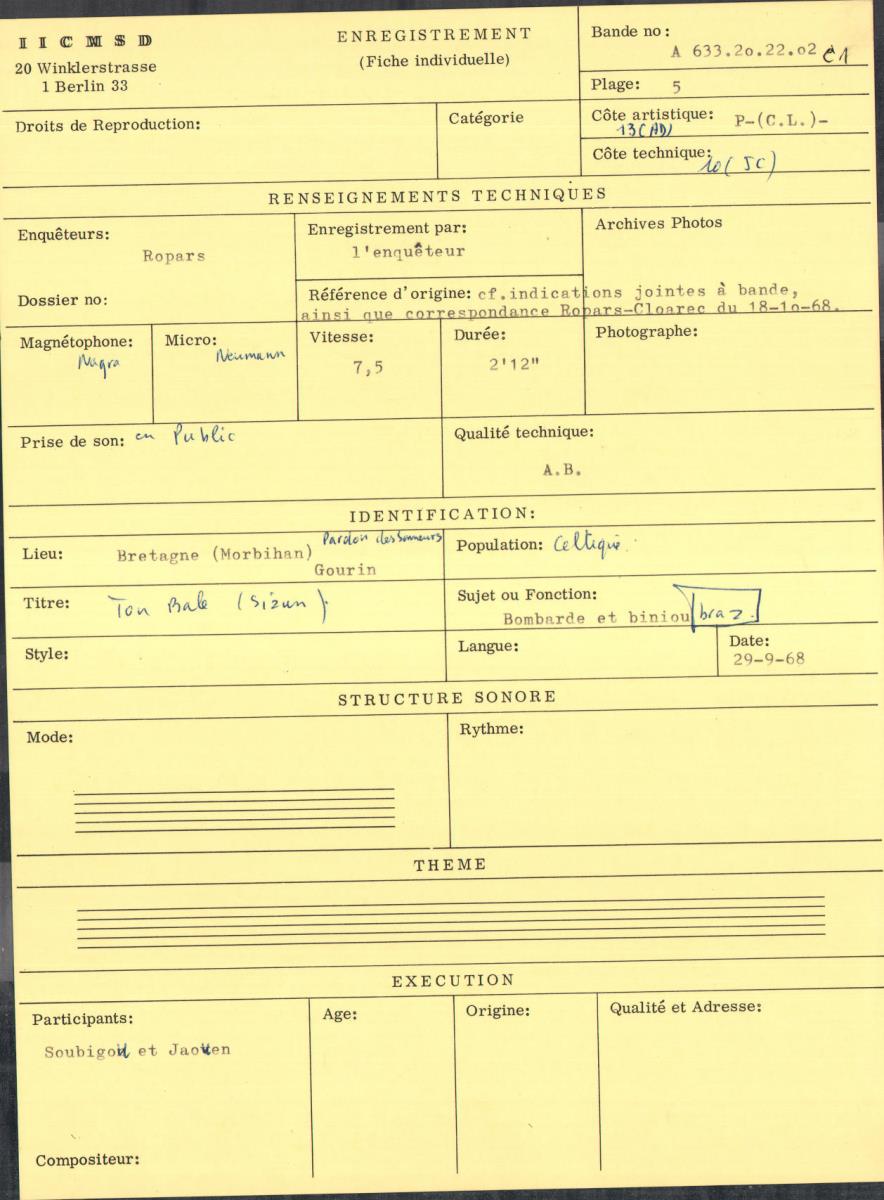 IICMSD
20 Winklerstrasse
1 Berlin 33
ENREGISTREMENT
(Fiche individuelle)
Bande no :
A 633.2o.22.o2 C1
Plage: 5
Droits de Reproduction:
Catégorie
Côte artistique: P-(C.L.)-
13(AD)
Côte technique:
10(JC)
RENSEIGNEMENTS TECHNIQUES
Enquêteurs:
Ropars
Dossier no:
Enregistrement par:
l'enquêteur
Archives Photos
Référence d'origine: cf.indications jointes à bande,
ainsi que correspondance Ropars-Cloarec du 18-1o-68.
Magnétophone:
Nagra
Micro:
Neumann
Vitesse:
7,5
Durée:
2'12"
Photographe:
Prise de son: en Public
Qualité technique:
A.B.
IDENTIFICATION:
Lieu: Bretagne (Morbihan)
Pardon des Sonneurs
Gourin
Population: Celtique.
Titre: Ton Bale (Sizun)
Sujet ou Fonction:
Bombarde et biniou braz.
Style:
Langue:
Date:
29-9-68
STRUCTURE SONORE
Mode:
Rythme:
THEME
EXECUTION
Participants:
Soubigou et Jaouen
Age:
Origine:
Qualité et Adresse:
Compositeur: